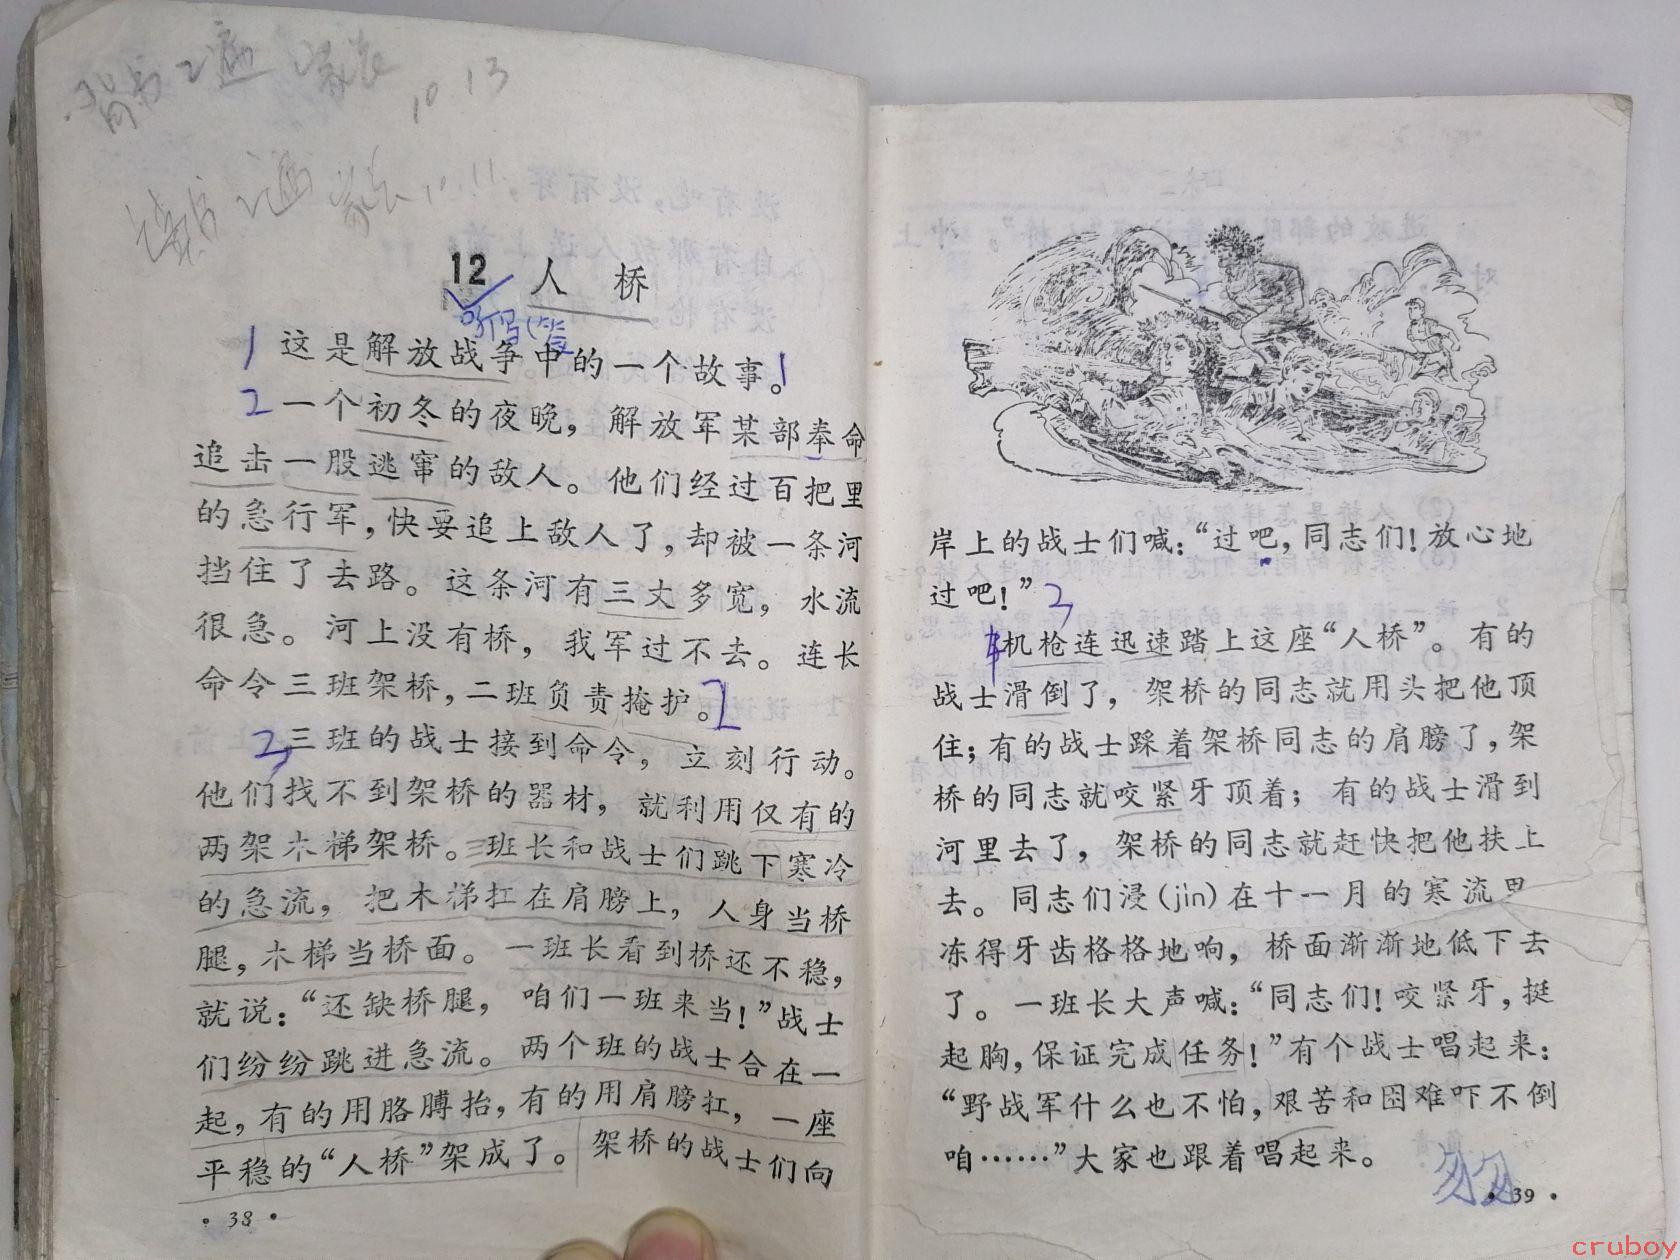 背书2遍 家长 10.13
读书2遍 家长 10.11
12 人 桥
听写(签
1 这是解放战争中的一个故事。1
2 一个初冬的夜晚，解放军某部奉命
追击一股逃窜的敌人。他们经过百把里
的急行军，快要追上敌人了，却被一条河
挡住了去路。这条河有三丈多宽，水流
很急。河上没有桥，我军过不去。连长
命令三班架桥，二班负责掩护。2
3 三班的战士接到命令，立刻行动。
他们找不到架桥的器材，就利用仅有的
两架木梯架桥。三班长和战士们跳下寒冷
的急流，把木梯扛在肩膀上，人身当桥
腿，木梯当桥面。一班长看到桥还不稳，
就说：“还缺桥腿，咱们一班来当！”战士
们纷纷跳进急流。两个班的战士合在一
起，有的用胳膊抬，有的用肩膀扛，一座
平稳的“人桥”架成了。架桥的战士们向
• 38 •
岸上的战士们喊：“过吧，同志们！放心地
过吧！”3
4 机枪连迅速踏上这座“人桥”。有的
战士滑倒了，架桥的同志就用头把他顶
住；有的战士踩着架桥同志的肩膀了，架
桥的同志就咬紧牙顶着；有的战士滑到
河里去了，架桥的同志就赶快把他扶上
去。同志们浸(jìn)在十一月的寒流里
冻得牙齿格格地响，桥面渐渐地低下去
了。一班长大声喊：“同志们！咬紧牙，挺
起胸，保证完成任务！”有个战士唱起来：
“野战军什么也不怕，艰苦和困难吓不倒
咱……”大家也跟着唱起来。
• 39 •
cruboy